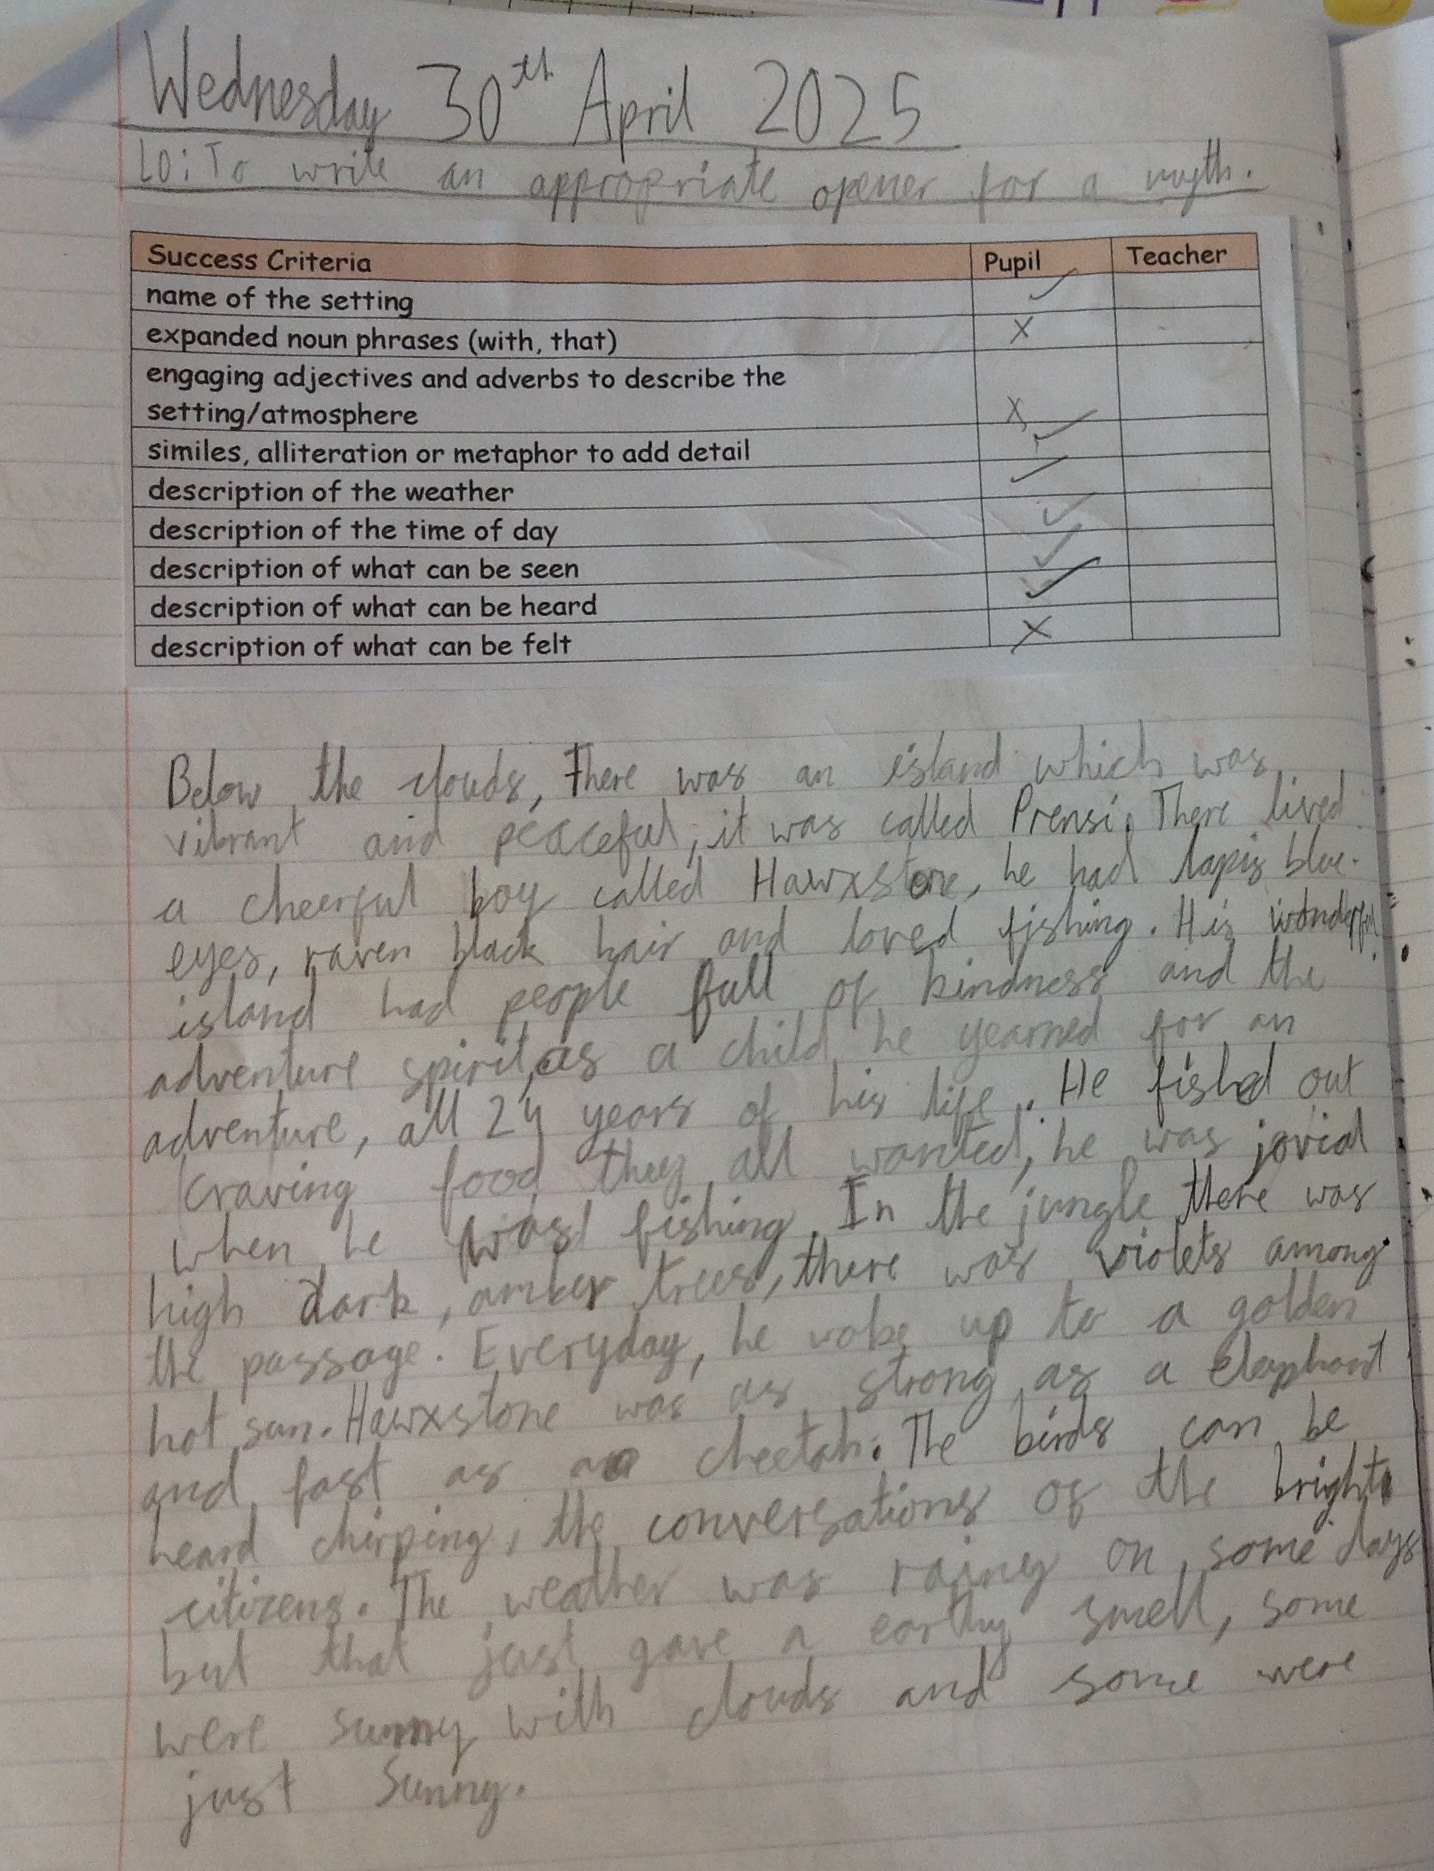 Wednesday 30th April 2025
LO: To write an appropriate opener for a myth.
Success Criteria Pupil Teacher
name of the setting ✓
expanded noun phrases (with, that) X
engaging adjectives and adverbs to describe the
setting/atmosphere X
similes, alliteration or metaphor to add detail ✓
description of the weather ✓
description of the time of day ✓
description of what can be seen ✓
description of what can be heard ✓
description of what can be felt X
Below the clouds, There was an island which was
vibrant and peaceful, it was called Prensi. There lived
a cheerful boy called Hawxstone, he had lapis blue
eyes, raven black hair and loved fishing. His wonderful
island had people full of kindness and the
adventure spirit, as a child he yearned for an
adventure, all 24 years of his life. He fished out
craving food they all wanted, he was jovial
when he was fishing. In the jungle there was
high dark, amber trees, there was violets among
the passage. Everyday, he woke up to a golden
hot sun. Hawxstone was as strong as a elephant
and fast as a cheetah. The birds can be
heard chirping, the conversations of the bright
citizens. The weather was rainy on some days
but that just gave a earthy smell, some
were sunny with clouds and some were
just sunny.